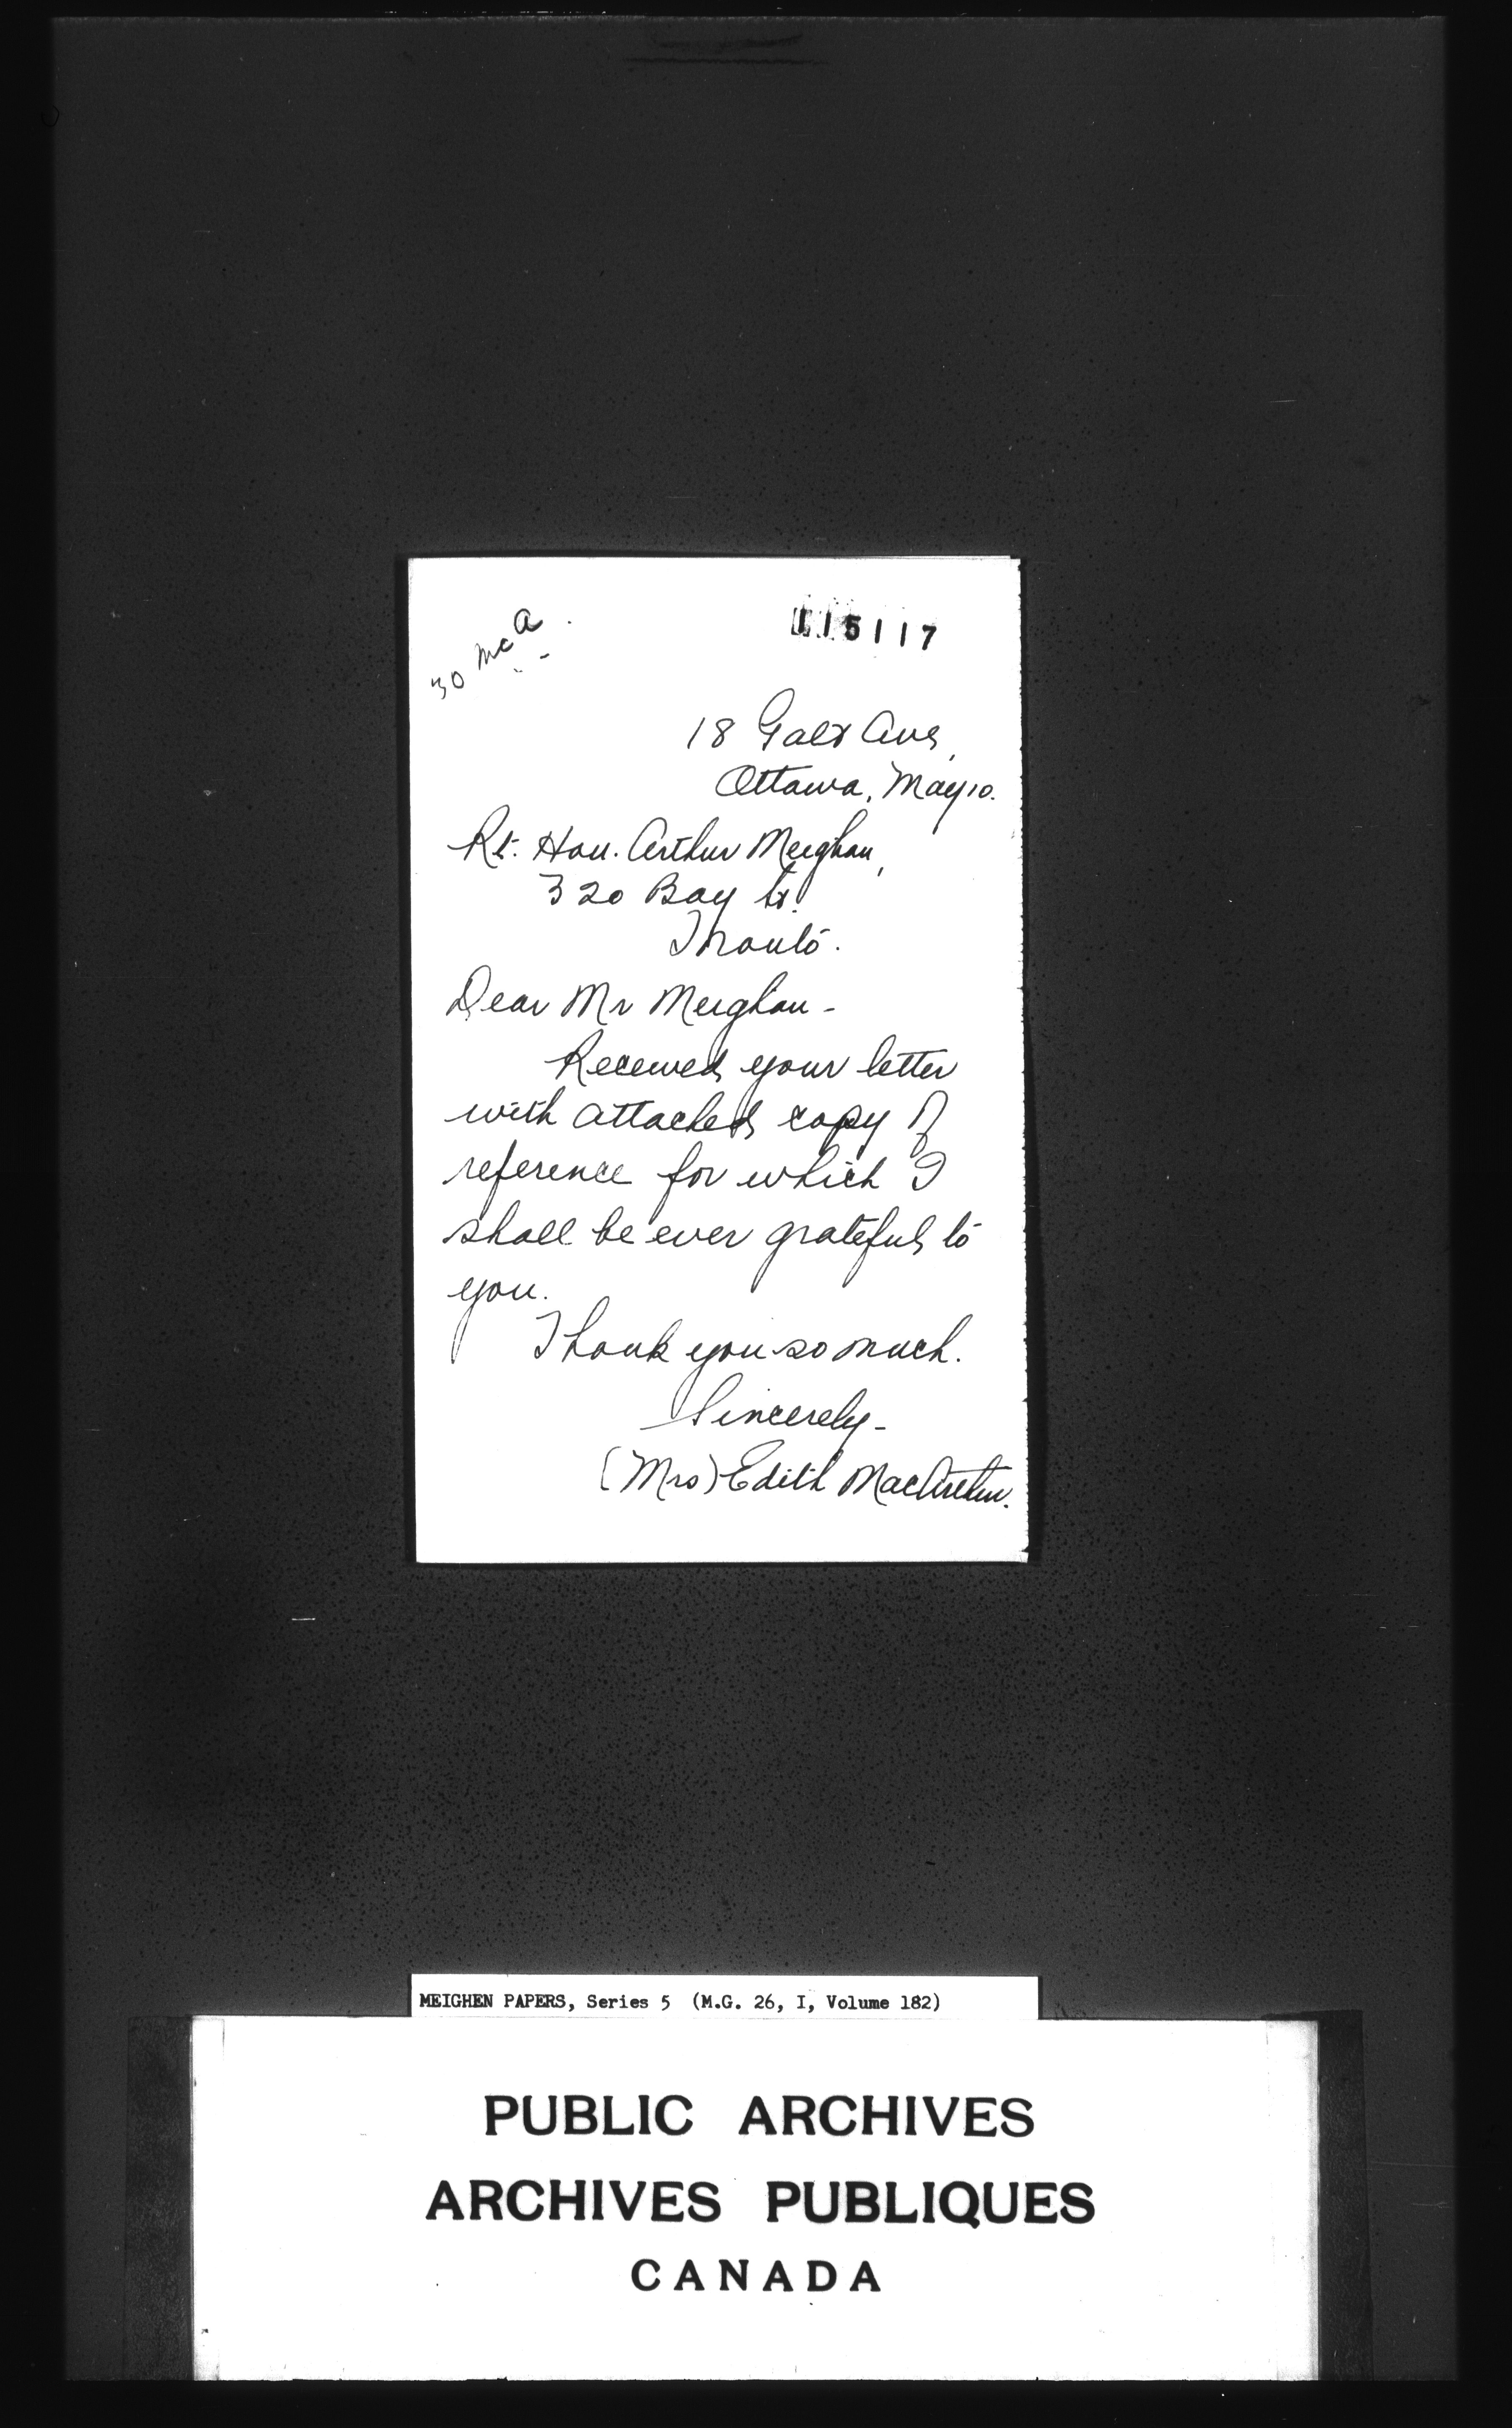 30 McA.
115117
18 Galt Ave,
Ottawa, May 10.
Rt. Hon. Arthur Meighan,
320 Bay St.
Toronto.
Dear Mr Meighan -
Received your letter
with attached copy of
reference for which I
shall be ever grateful to
you.
Thank you so much.
Sincerely -
(Mrs) Edith MacArthur.
MEIGHEN PAPERS, Series 5 (M.G. 26, I, Volume 182)
PUBLIC ARCHIVES
ARCHIVES PUBLIQUES
CANADA